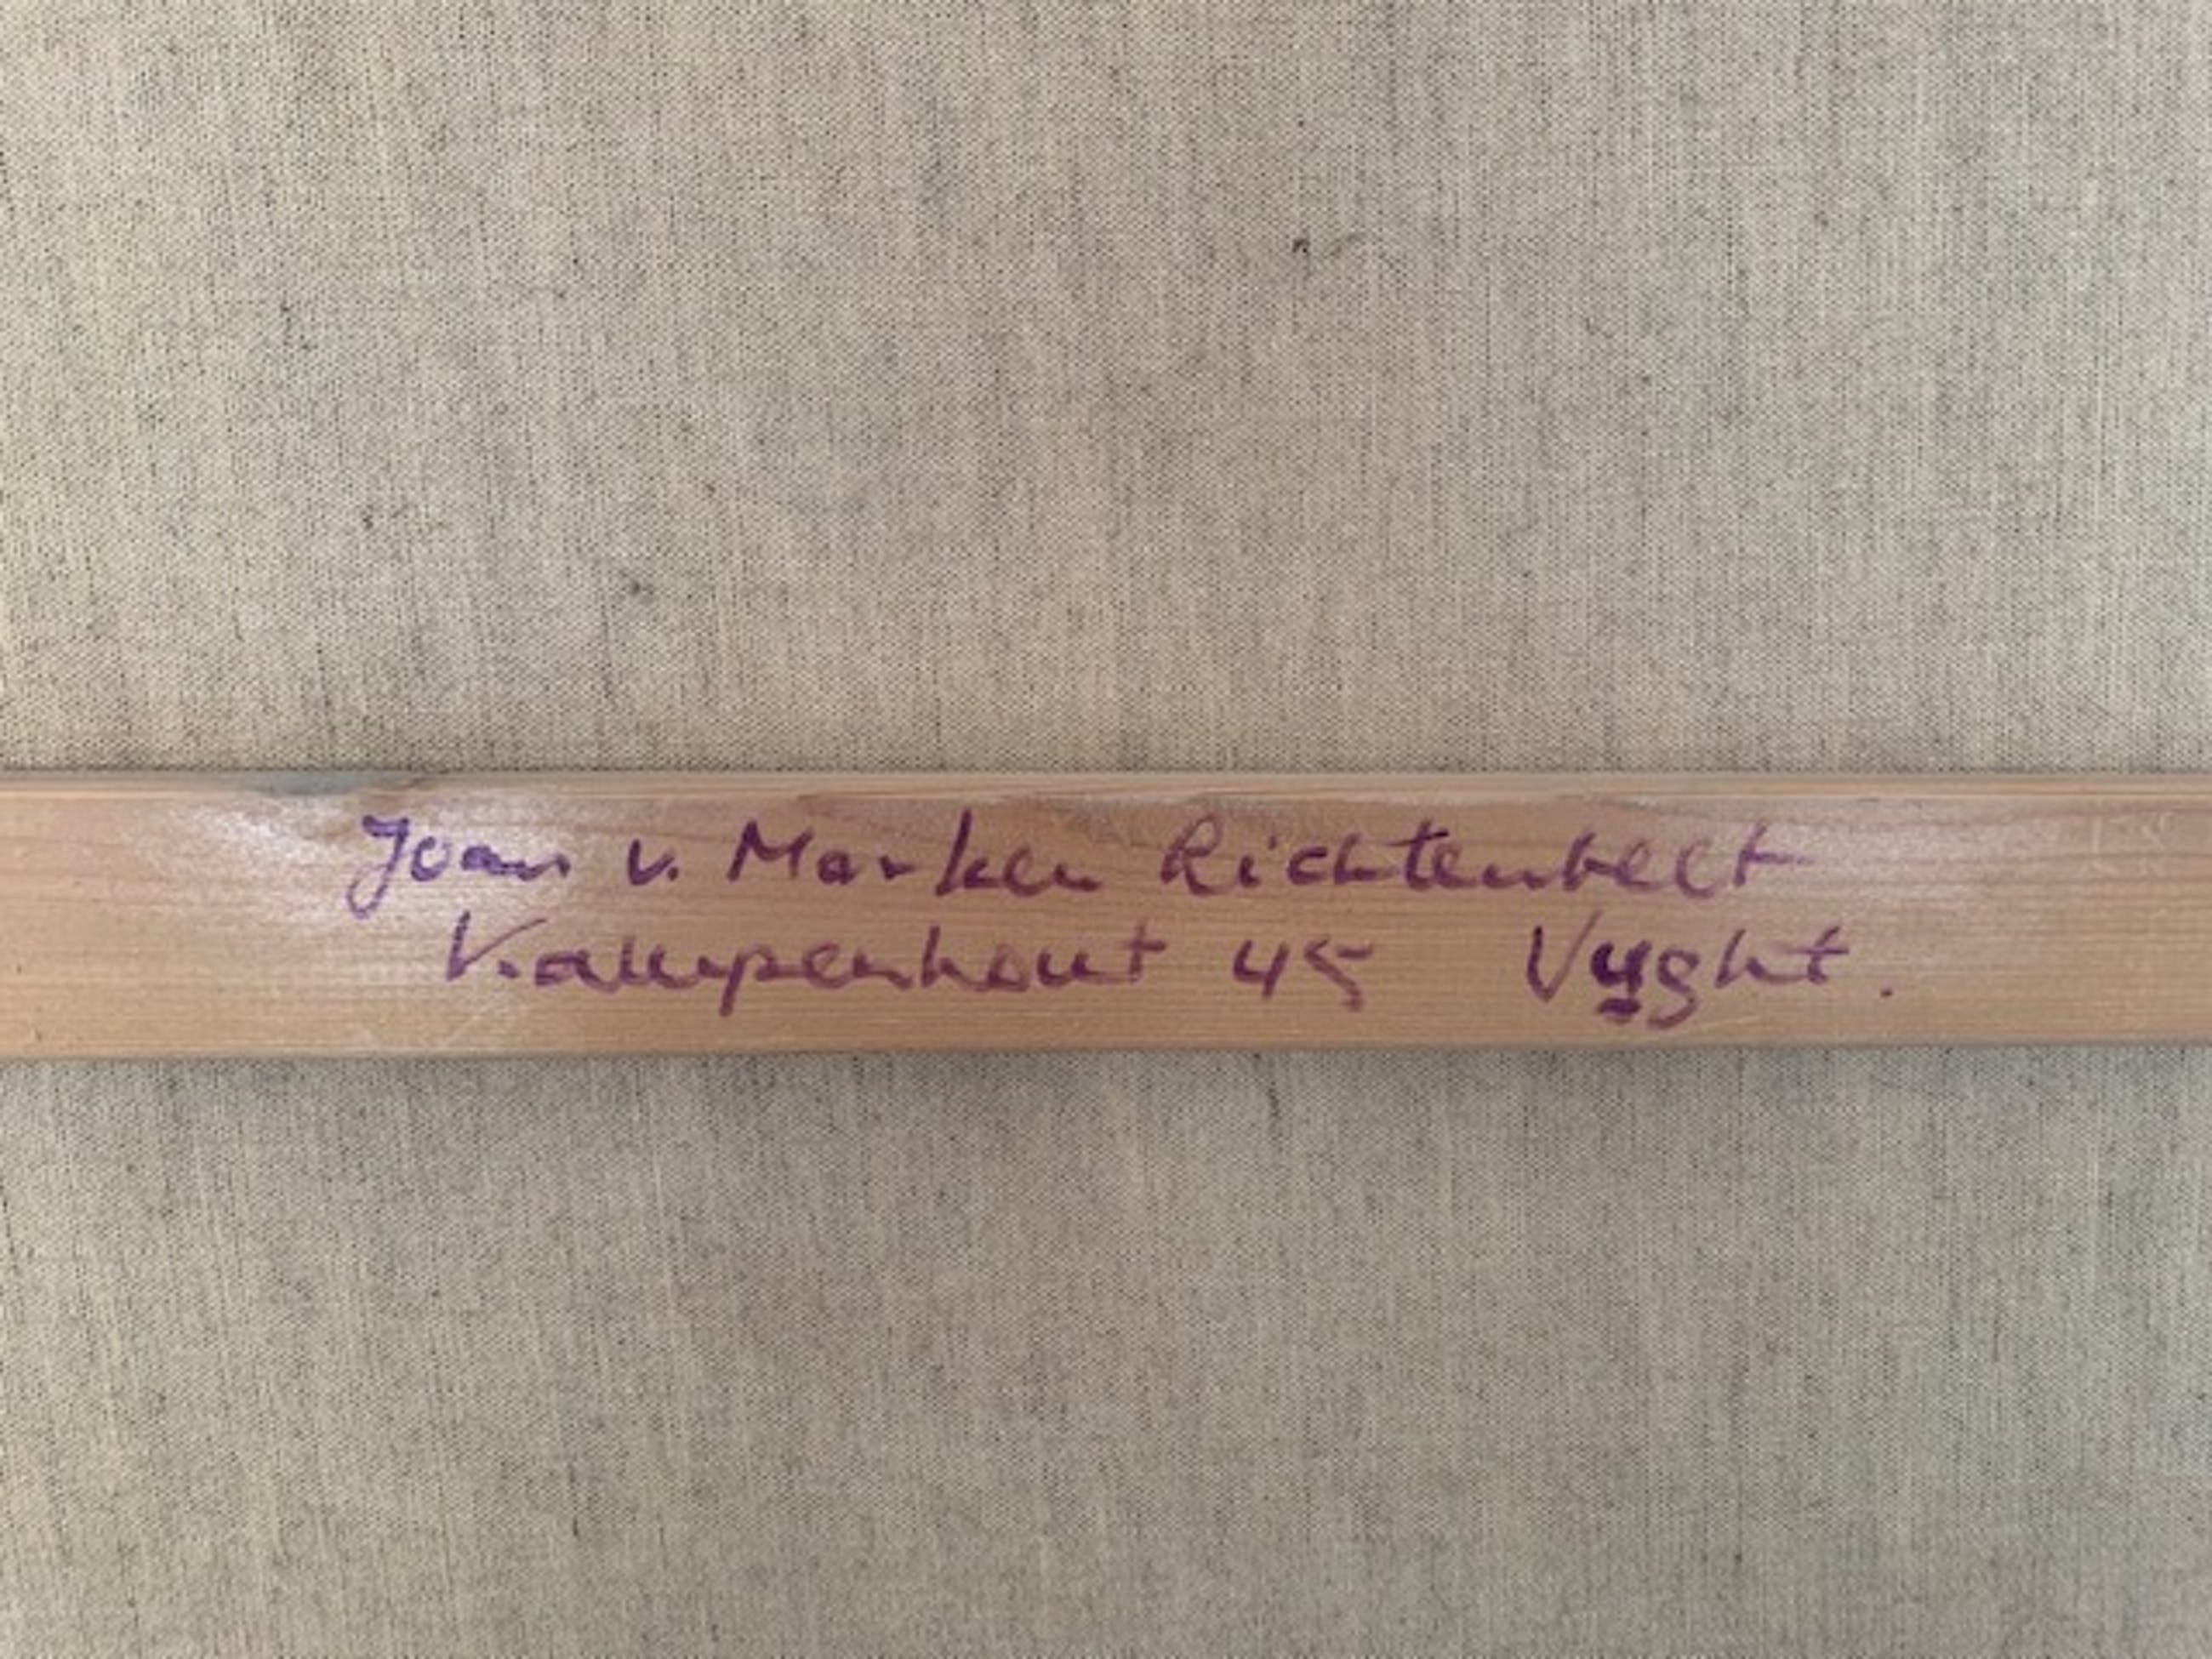 Joan v. Marken Richtenbelt
Kampenhout 45 Vught.